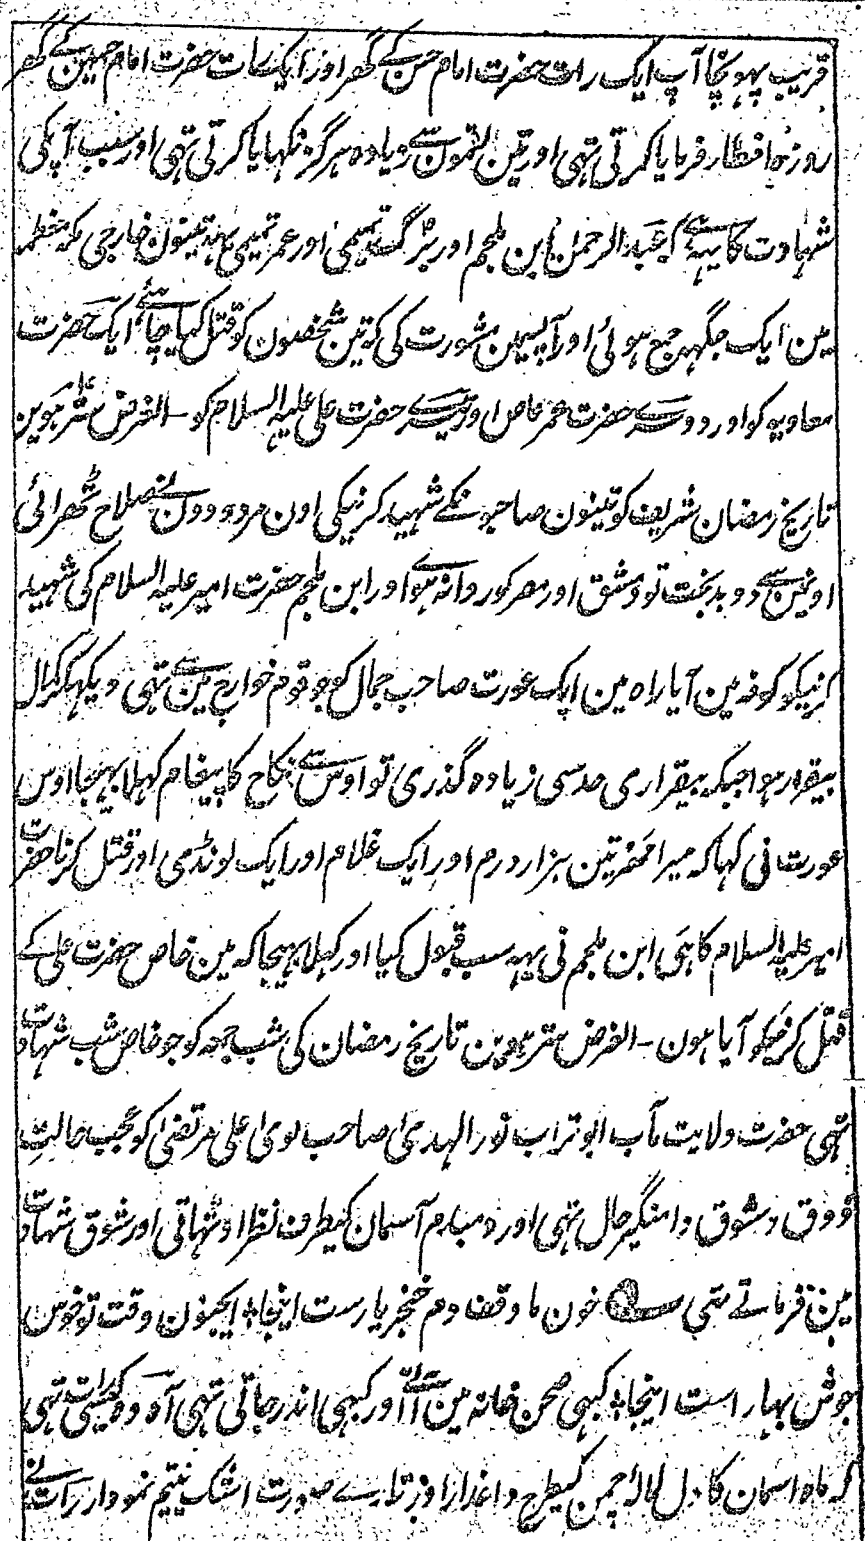 قریب پہونچا آپ ایک رات حضرت امام حسن کے گھر اور ایک رات حضرت امام حسین کے گھر
روزہ افطار فرمایا کرتی تہی اور تین لقمون سے زیادہ ہرگز نکہایا کرتی تہی اور سبب آپکی
شہادت کا یہہ ہے کہ عبد الرحمٰن ابن ملجم اور برک تمیمی اور عمر تمیمی یہہ تینون خارجی مکہ معظمہ
مین ایک جگہہ جمع ہوئی اور آپسمین مشورت کی کہ تین شخصون کو قتل کیا چاہئے ایک حضرت
معاویہ کو اور دوسرے حضرت عمر عاص اور تیسرے حضرت علی علیہ السلام کو - الغرض سترہوین
تاریخ رمضان شریف کو تینون صاحبونکے شہید کرنیکی اون مردودون نے صلاح ٹھرائی
اونمین سے دو بدبخت تو دمشق اور مصر کو روانہ ہوے اور ابن ملجم حضرت امیر علیہ السلام کی شہید
کرنیکو کوفہ مین آیا راہ مین ایک عورت صاحب جمال کو جو قوم خوارج مین سے تہی دیکہکر کمال
بیقرار ہوا جبکہ بیقراری حد سی زیادہ گذری تو اوس سے نکاح کا پیغام کہلا بہیجا اوس
عورت نی کہا کہ میرا مہر تین ہزار درم اور ایک غلام اور ایک لونڈی اور قتل کرنا حضرت
امیر علیہ السلام کا ہی ابن ملجم نی یہہ سب قبول کیا اور کہلا بہیجا کہ مین خاص حضرت علی کے
قتل کرنیکو آیا ہون - الغرض سترہوین تاریخ رمضان کی شب جمعہ کو جو خاص شب شہادت
تہی حضرت ولایت مآب ابو تراب نور الہدیٰ صاحب لویٰ علی مرتضیٰ کو عجب حالت
ذوق و شوق دامنگیر حال تہی اور دمبدم آسمان کیطرف نظر اوٹہاتی اور شوق شہادت
مین فرماتے تہی خون ما وقف دم خنجر یارست اینجا ایجنون وقت تو خوش
جوش بہار است اینجا کبہی صحن خانہ مین آتے اور کبہی اندر جاتی تہی آہ وہ کیسی رات تہی
کہ ماہ آسمان کا دل لالہ چمن کیطرح داغدار اور تارے صورت اشک یتیم نمودار رات نے